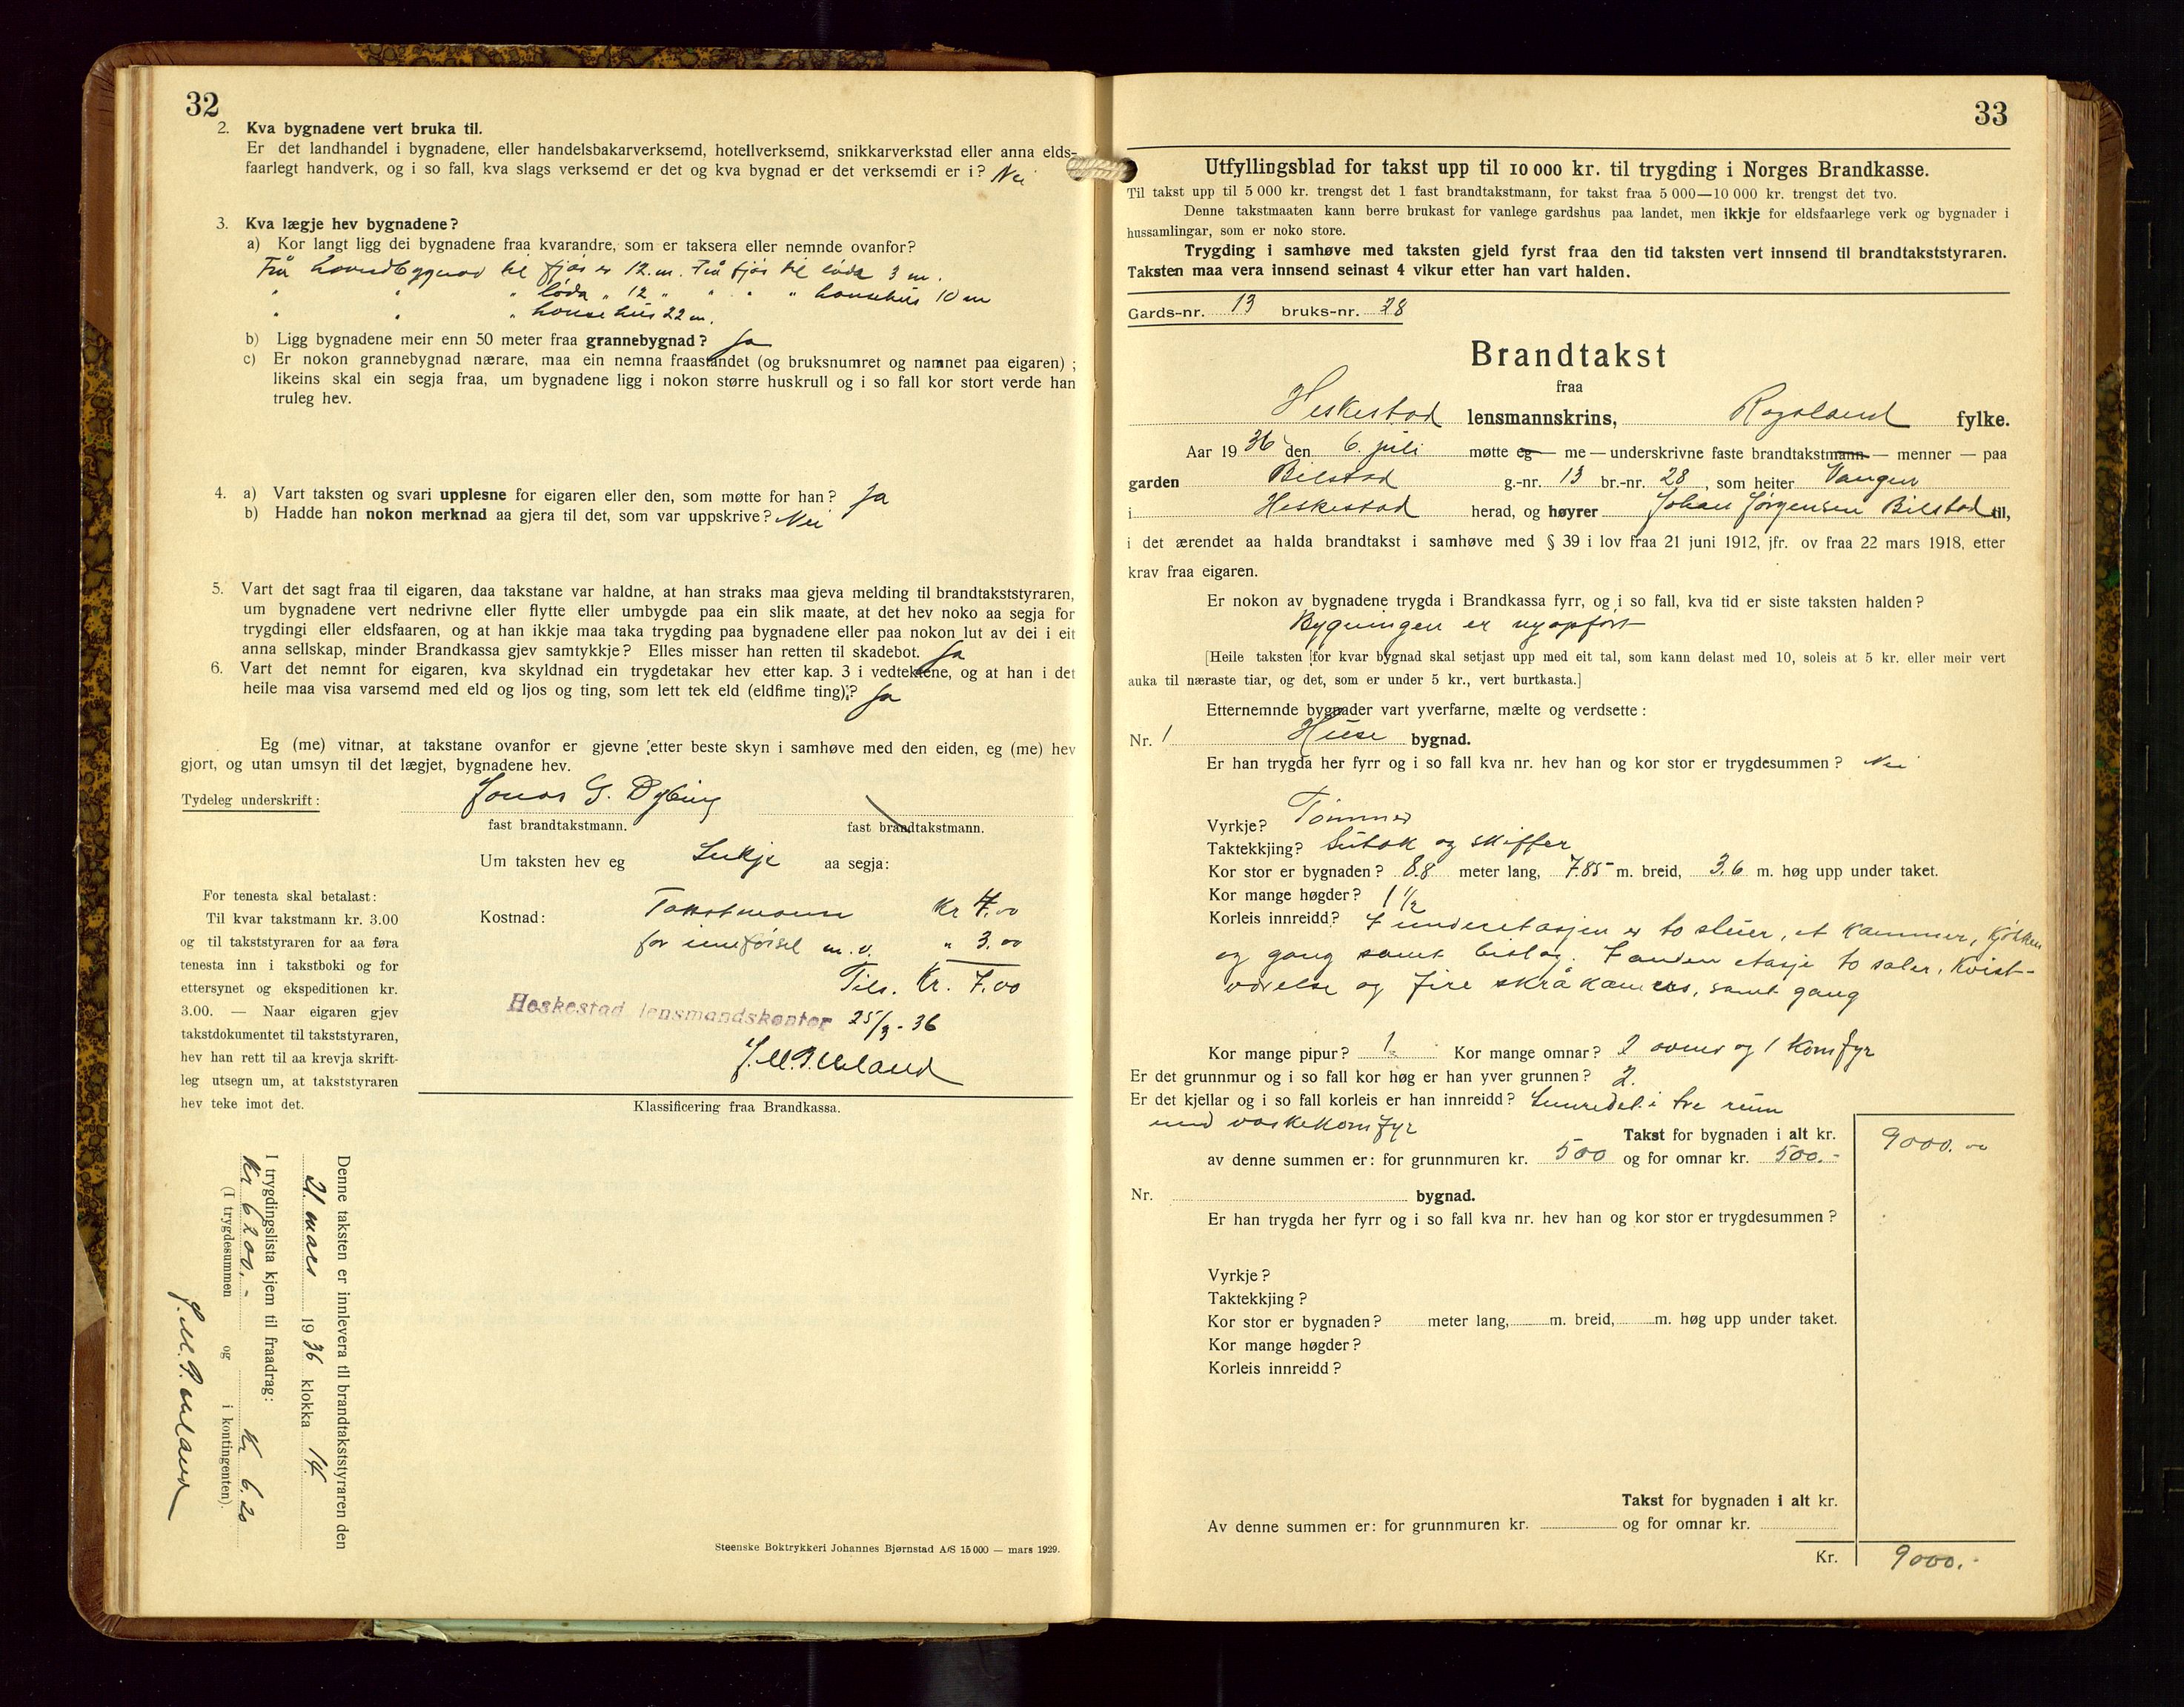 32
2. Kva bygnadene vert bruka til.
Er det landhandel i bygnadene, eller handelsbakarverksemd, hotellverksemd, snikkarverkstad eller anna elds-
faarlegt handverk, og i so fall, kva slags verksemd er det og kva bygnad er det verksemdi er i? Nei
3. Kva lægje hev bygnadene?
a) Kor langt ligg dei bygnadene fraa kvarandre, som er taksera eller nemnde ovanfor?
Frå hovedbygnad til fjøs er 12. m. Frå fjøs til löda 3 m.
" " " löda " 12 " " " " hønsehus 10 m
" " " hønsehus 22 m.
b) Ligg bygnadene meir enn 50 meter fraa grannebygnad? Ja
c) Er nokon grannebygnad nærare, maa ein nemna fraastandet (og bruksnumret og namnet paa eigaren);
likeins skal ein segja fraa, um bygnadene ligg i nokon større huskrull og i so fall kor stort verde han
truleg hev.
4. a) Vart taksten og svari upplesne for eigaren eller den, som møtte for han? Ja
b) Hadde han nokon merknad aa gjera til det, som var uppskrive? Nei
5. Vart det sagt fraa til eigaren, daa takstane var haldne, at han straks maa gjeva melding til brandtakststyraren,
um bygnadene vert nedrivne eller flytte eller umbygde paa ein slik maate, at det hev noko aa segja for
trygdingi eller eldsfaaren, og at han ikkje maa taka trygding paa bygnadene eller paa nokon lut av dei i eit
anna sellskap, minder Brandkassa gjev samtykkje? Elles misser han retten til skadebot. Ja
6. Vart det nemnt for eigaren, kva skyldnad ein trygdetakar hev etter kap. 3 i vedtektene, og at han i det
heile maa visa varsemd med eld og ljos og ting, som lett tek eld (eldfime ting)? Ja
Eg (me) vitnar, at takstane ovanfor er gjevne etter beste skyn i samhøve med den eiden, eg (me) hev
gjort, og utan umsyn til det lægjet, bygnadene hev.
Tydeleg underskrift: Jonas G. Dybing
fast brandtakstmann. fast brandtakstmann.
Um taksten hev eg Inkje aa segja:
For tenesta skal betalast:
Til kvar takstmann kr. 3.00
og til takststyraren for aa føra
tenesta inn i takstboki og for
ettersynet og ekspeditionen kr.
3.00. — Naar eigaren gjev
takstdokumentet til takststyraren,
hev han rett til aa krevja skrift-
leg utsegn um, at takststyraren
hev teke imot det.
Kostnad: Takstmann Kr 4.00
for inneførsel m. v. " 3.00
Tils. Kr. 7.00
Heskestad lensmandskontor 25/3-36
Klassificering fraa Brandkassa.
Denne taksten er innlevera til brandtakststyraren den
21. mars 1936 klokka 14.
I trygdingslista kjem til fraadrag:
Kr 6200,- Kr 6.20
(I trygdesummen og i kontingenten).
Steenske Boktrykkeri Johannes Bjørnstad A/S 15000 — mars 1929.
33
Utfyllingsblad for takst upp til 10 000 kr. til trygding i Norges Brandkasse.
Til takst upp til 5 000 kr. trengst det 1 fast brandtakstmann, for takst fraa 5 000—10 000 kr. trengst det tvo.
Denne takstmaaten kann berre brukast for vanlege gardshus paa landet, men ikkje for eldsfaarlege verk og bygnader i
hussamlingar, som er noko store.
Trygding i samhøve med taksten gjeld fyrst fraa den tid taksten vert innsend til brandtakststyraren.
Taksten maa vera innsend seinast 4 vikur etter han vart halden.
Gards-nr. 13 bruks-nr. 28
Brandtakst
fraa
Heskestad lensmannskrins, Rogaland fylke.
Aar 1936 den 6. juli møtte eg — me — underskrivne faste brandtakstmann — menner — paa
garden Bilstad g.-nr. 13 br.-nr. 28, som heiter Vangen
i Heskestad herad, og høyrer Johan Jørgensen Bilstad til,
i det ærendet aa halda brandtakst i samhøve med § 39 i lov fraa 21 juni 1912, jfr. ov fraa 22 mars 1918, etter
krav fraa eigaren.
Er nokon av bygnadene trygda i Brandkassa fyrr, og i so fall, kva tid er siste taksten halden?
Bygningen er nyopført
[Heile taksten for kvar bygnad skal setjast upp med eit tal, som kann delast med 10, soleis at 5 kr. eller meir vert
auka til næraste tiar, og det, som er under 5 kr., vert burtkasta.]
Etternemnde bygnader vart yverfarne, mælte og verdsette:
Nr. 1 Huse bygnad.
Er han trygda her fyrr og i so fall kva nr. hev han og kor stor er trygdesummen? Nei
Vyrkje? Tømmer
Taktekkjing? Sutak og skiffer
Kor stor er bygnaden? 8.8 meter lang, 7.85 m. breid, 3.6 m. høg upp under taket.
Kor mange høgder? 1 1/2
Korleis innreidd? I underetasjen er to stuer, et kammer, kjøkken
og gang samt bislag. I anden etasje to saler, kvist-
værelse og fire skråkamers, samt gang
Kor mange pipur? 1 Kor mange omnar? 2 ovner og 1 komfyr
Er det grunnmur og i so fall kor høg er han yver grunnen? 2.
Er det kjellar og i so fall korleis er han innreidd? Innredet i tre rum
med vaskekomfyr
Takst for bygnaden i alt kr. 9000.00
av denne summen er: for grunnmuren kr. 500 og for omnar kr. 500.-
Nr. bygnad.
Er han trygda her fyrr og i so fall kva nr. hev han og kor stor er trygdesummen?
Vyrkje?
Taktekkjing?
Kor stor er bygnaden? meter lang, m. breid, m. høg upp under taket.
Kor mange høgder?
Korleis innreidd?
Takst for bygnaden i alt kr.
Av denne summen er: for grunnmuren kr. og for omnar kr.
Kr. 9000.-